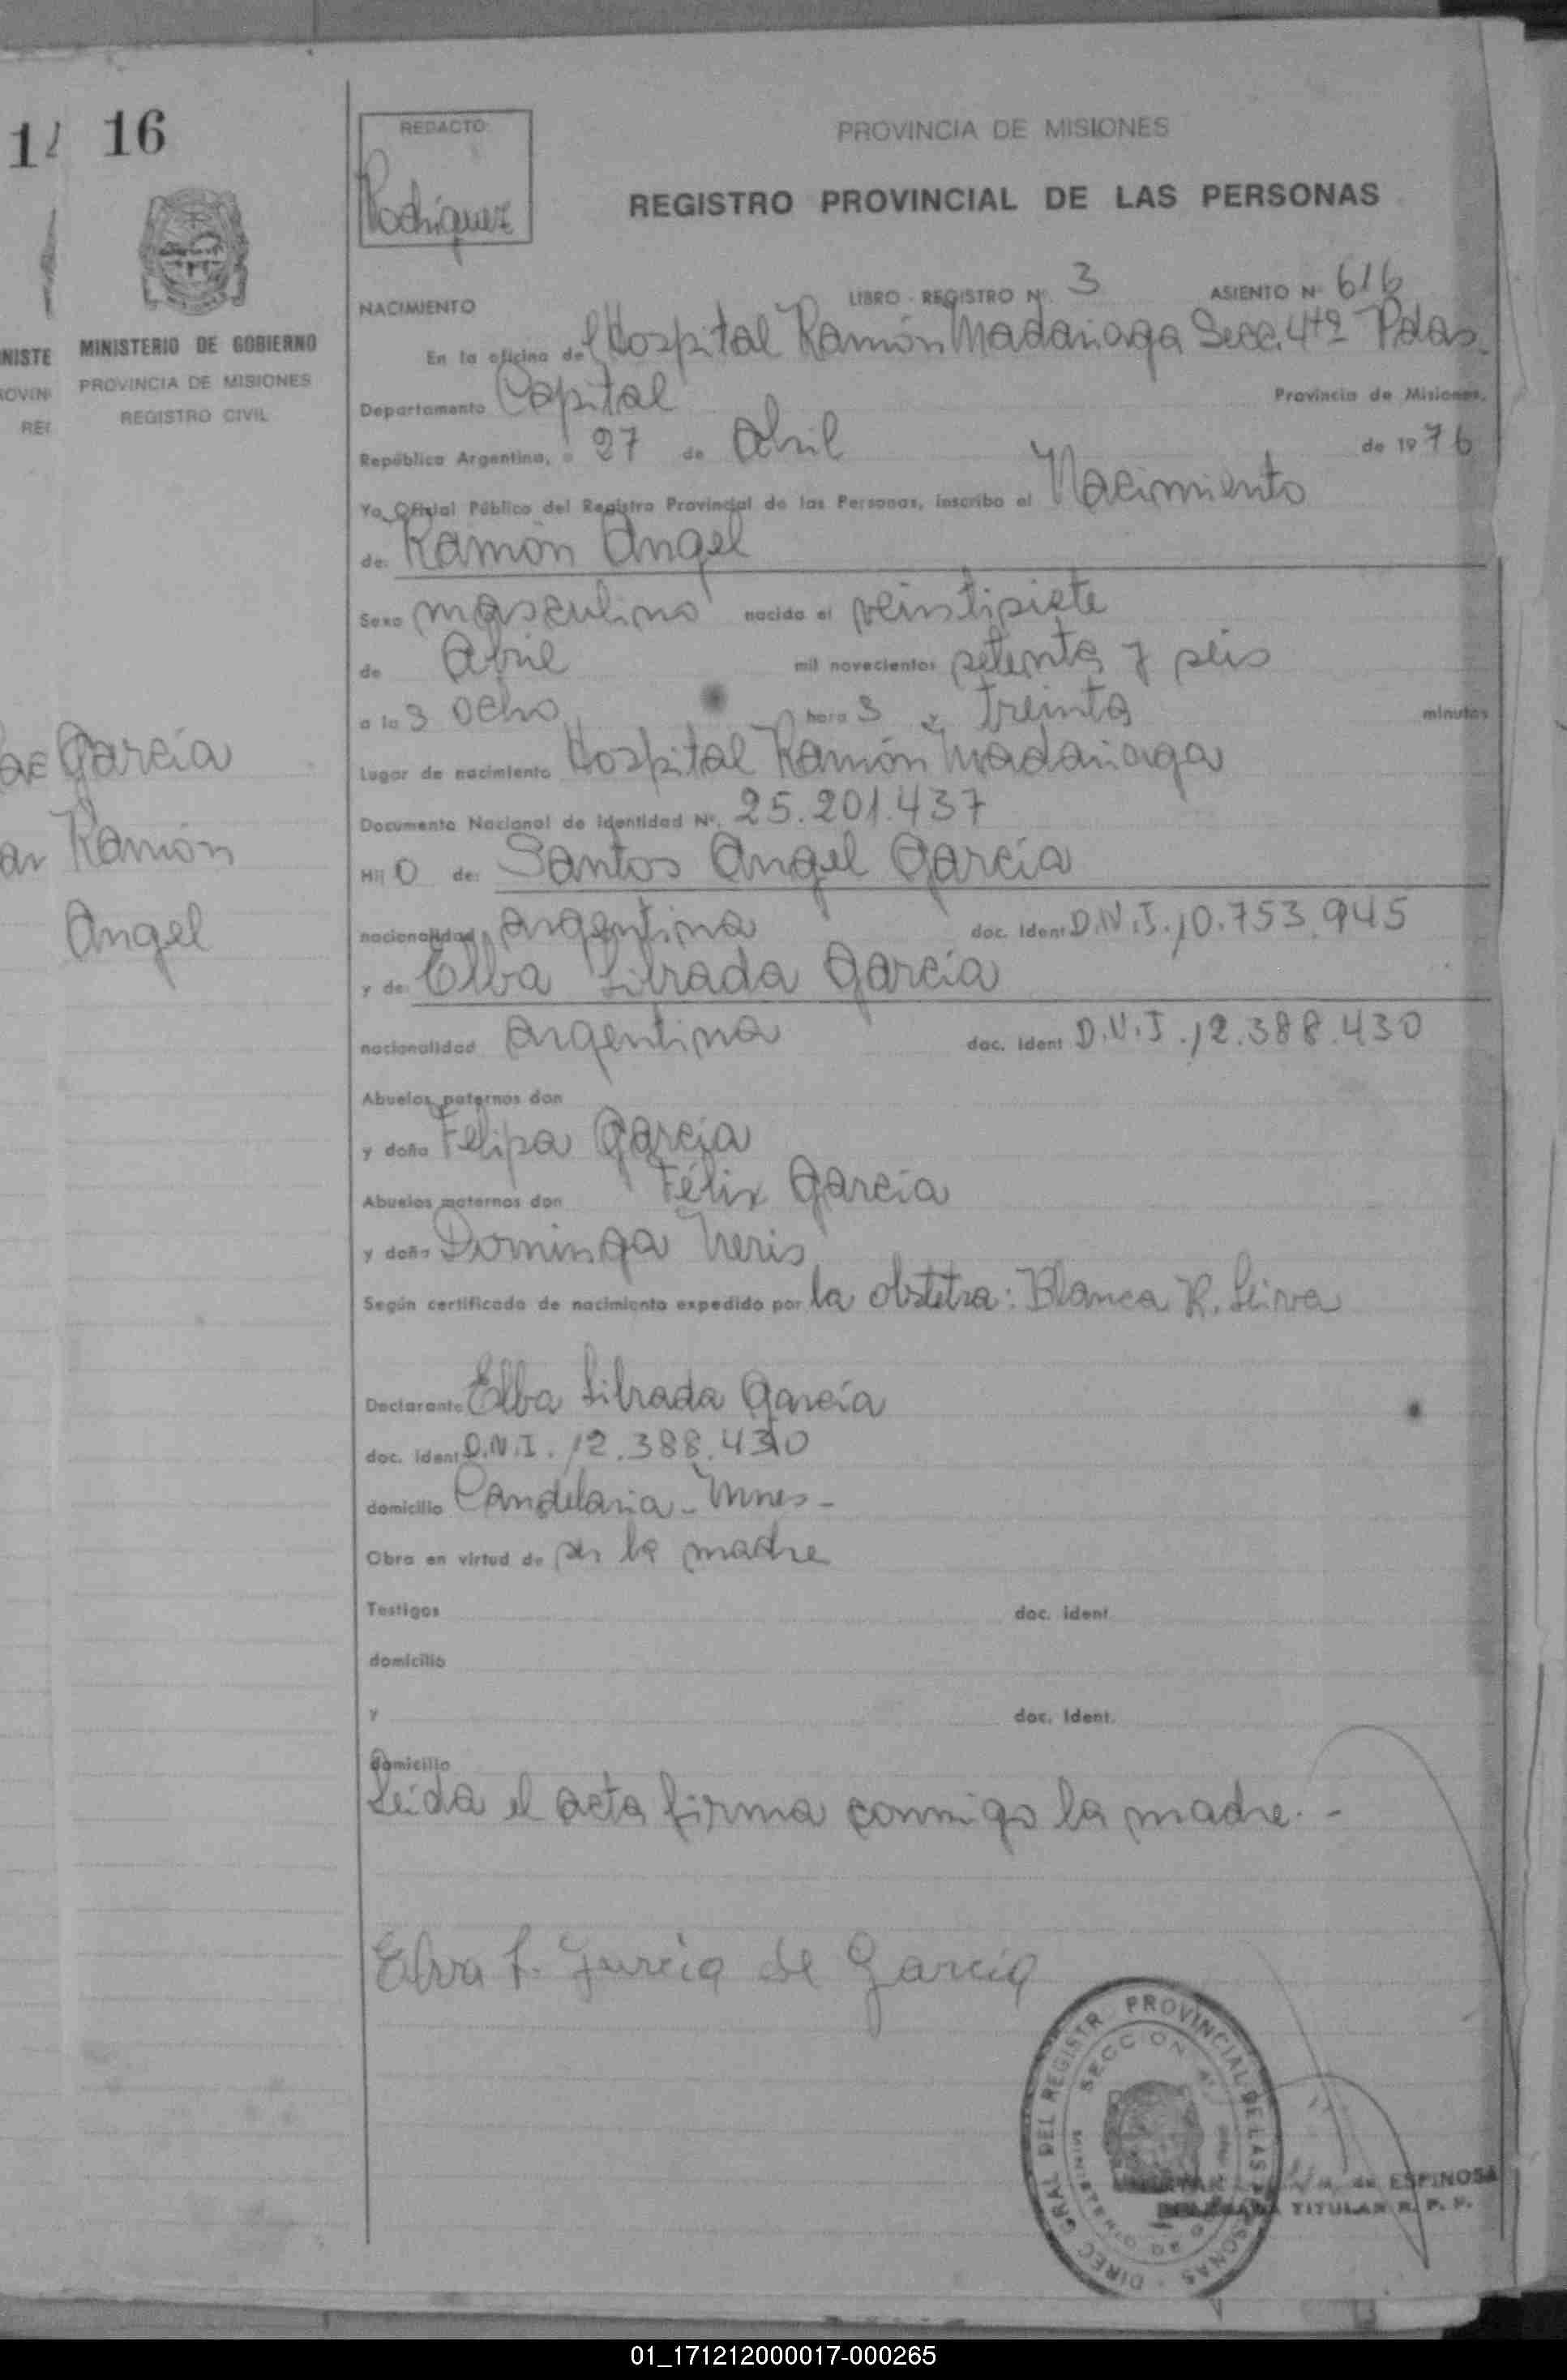 16
REDACTO
Rodriguez
PROVINCIA DE MISIONES
REGISTRO PROVINCIAL DE LAS PERSONAS
MINISTERIO DE GOBIERNO
PROVINCIA DE MISIONES
REGISTRO CIVIL
García
Ramón
Angel
NACIMIENTO LIBRO - REGISTRO Nº. 3 ASIENTO Nº 616
En la oficina del Hospital Ramón Madariaga Secc. 4ta Pdas.
Departamento Capital Provincia de Misiones,
República Argentina, a 27 de Abril de 1976
Yo, Oficial Público del Registro Provincial de las Personas, inscribo el Nacimiento
de: Ramón Angel
Sexo masculino nacido el veintisiete
de Abril mil novecientos setenta y seis
a las ocho horas y treinta minutos
Lugar de nacimiento Hospital Ramón Madariaga
Documento Nacional de Identidad Nº. 25.201.437
Hijo de: Santos Angel García
nacionalidad argentina doc. Ident D.N.I. 10.753.945
y de: Elba Librada García
nacionalidad argentina doc. Ident D.N.I. 12.388.430
Abuelos paternos don
y doña Felipa García
Abuelos maternos don Félix García
y doña Dominga Neris
Según certificado de nacimiento expedido por la obstetra: Blanca R. Leiva
Declarante Elba Librada García
doc. Ident D.N.I. 12.388.430
domicilio Candelaria - Mnes -
Obra en virtud de ser la madre
Testigos doc. ident
domicilio
y doc. Ident.
domicilio
Leida el acta firma conmigo la madre. -
Elva L. García de García
DIREC. GRAL DEL REGISTR. PROVINCIAL DE LAS PERSONAS
SECCION
MINISTERIO DE GO
de ESPINOSA
TITULAR R. P. P.
01_171212000017-000265